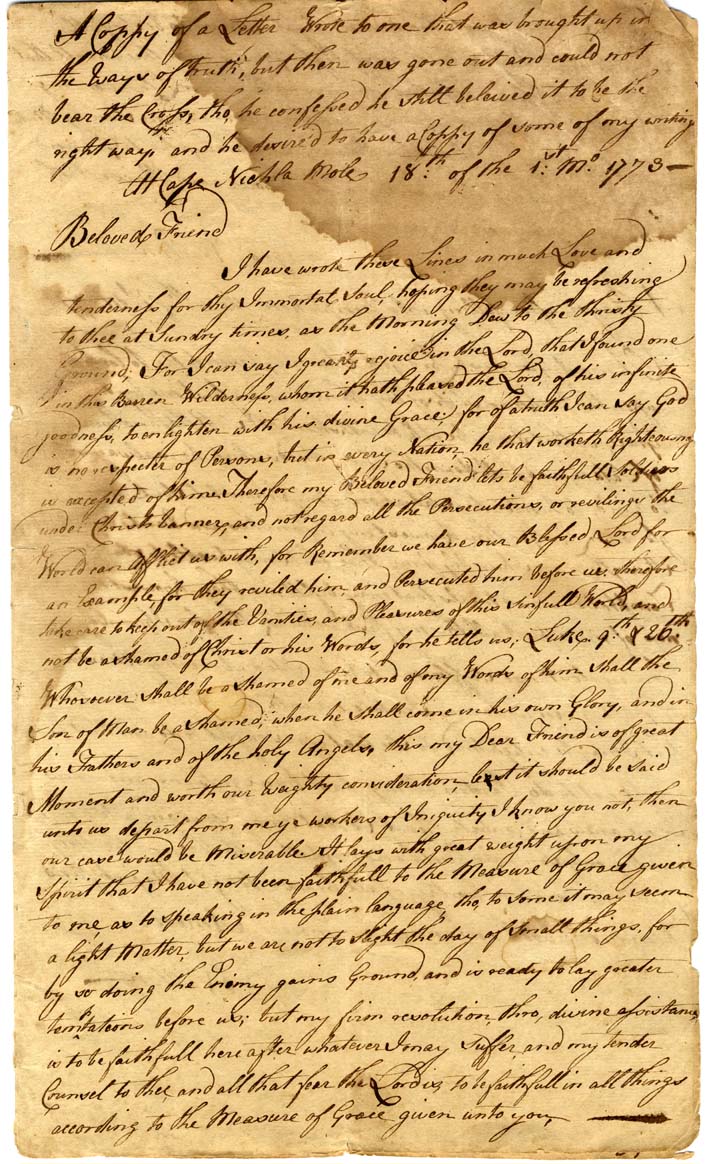 A Coppy of a Letter Wrote to one that was brought up in
the Ways of truth, but then was gone out and could not
bear the Cross, tho, he confessed he still beleived it to be the
right way, and he desired to have a Coppy of some of my writing
At Cape Nichla Mole 18.th of the 1.st Mo. 1773 —
Beloved Friend
I have wrote these Lines in much Love and
tenderness for thy Immortal Soul, hoping they may be refreshing
to thee at Sundry times, as the Morning Dew to the thirsty
Ground; For I can say I greatly rejoice in the Lord, that I found one
in this Barren Wilderness, whom it hath pleased the Lord, of his infinite
goodness, to enlighten with his divine Grace, for of a truth I can say God
is no respecter of Persons, but in every Nation he that worketh Righteousness
is accepted of him. Therefore my Beloved Friend lets be faithfull Soldiers
under Christs banner, and not regard all the Persecutions, or revilings the
World can Afflict us with, for Remember we have our Blessed Lord for
an Example for they reviled him, and Persecuted him before us, therefore
take care to keep out of the Vanities, and Pleasures of this sinfull World, and
not be ashamed of Christ or his Words, for he tells us; Luke 9.th & 26.th
Whosoever shall be ashamed of me and of my Words of him shall the
Son of Man be ashamed; when he shall come in his own Glory, and in
his Fathers and of the holy Angels, this my Dear Friend is of great
Moment and worth our Weighty consideration, lest it should be said
unto us depart from me ye workers of Iniquity I know you not, then
our case would be Miserable It lays with great weight upon my
Spirit that I have not been faithfull to the Measure of Grace given
to me, as to speaking in the plain language, tho, to some it may seem
a light Matter, but we are not to slight the day of small things, for
by so doing the Enemy gains Ground, and is ready to lay greater
temptations before us; but my firm resolution, thro, divine assistance,
is to be faithfull here after whatever I may suffer, and my tender
Counsel to thee, and all that fear the Lord is, to be faithfull in all things
according to the Measure of Grace given unto you, —